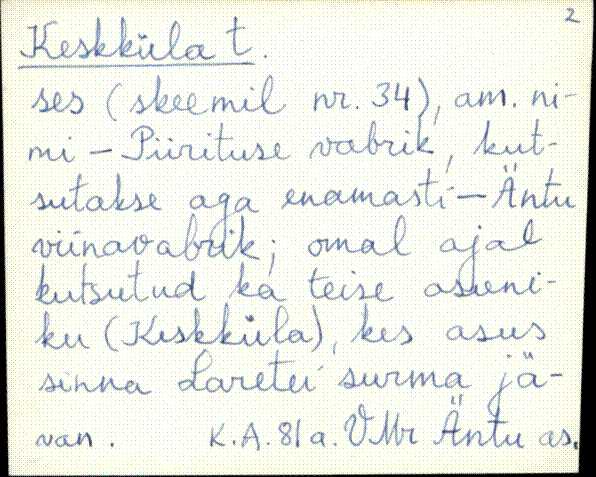 2
Keskküla t.
ses (skeemil nr. 34), am. ni-
mi – Piirituse vabrik, kut-
sutakse aga enamasti – Äntu
viinavabrik; omal ajal
kutsutud ka teise asuni-
ku (Keskküla), kes asus
sinna Laretei surma jä-
van. K.A. 81 a. VMr Äntu as.